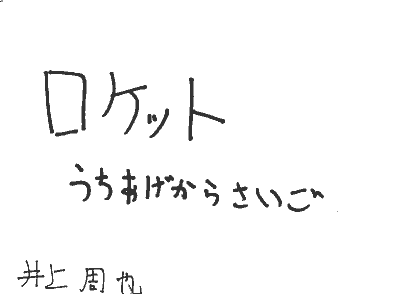 ロケット
うちあげからさいご
井上 周也